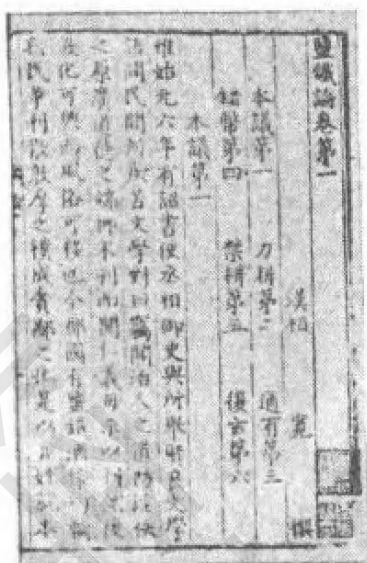 鹽鐵論卷第一
漢桓寬撰
本議第一 力耕第二 通有第三
錯幣第四 禁耕第五 復古第六
本議第一
惟始元六年有詔書使丞相御史與所舉賢良文學
語問民間所疾苦文學對曰竊聞治人之道防淫佚
之原廣道德之端抑末利而開仁義毋示以利然後
教化可興而風俗可移也今郡國有鹽鐵酒榷均輸
與民爭利散敦厚之樸成貪鄙之化是以百姓就本